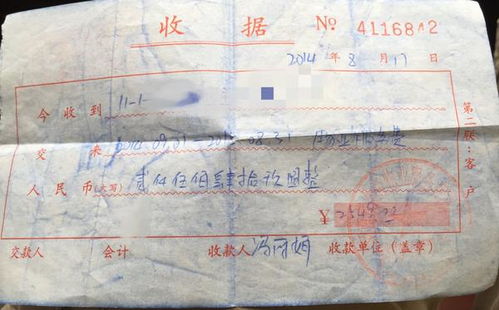 收 据 № 4116842
2014 年 8 月 17 日
今 收 到 11-1-
交 来 2014.09.01-2015.08.31
人民币(大写) 贰仟伍佰肆拾玖圆整
¥ 2549.00
交款人 会计 收款人 冯 娟 收款单位(盖章)
第二联:客户